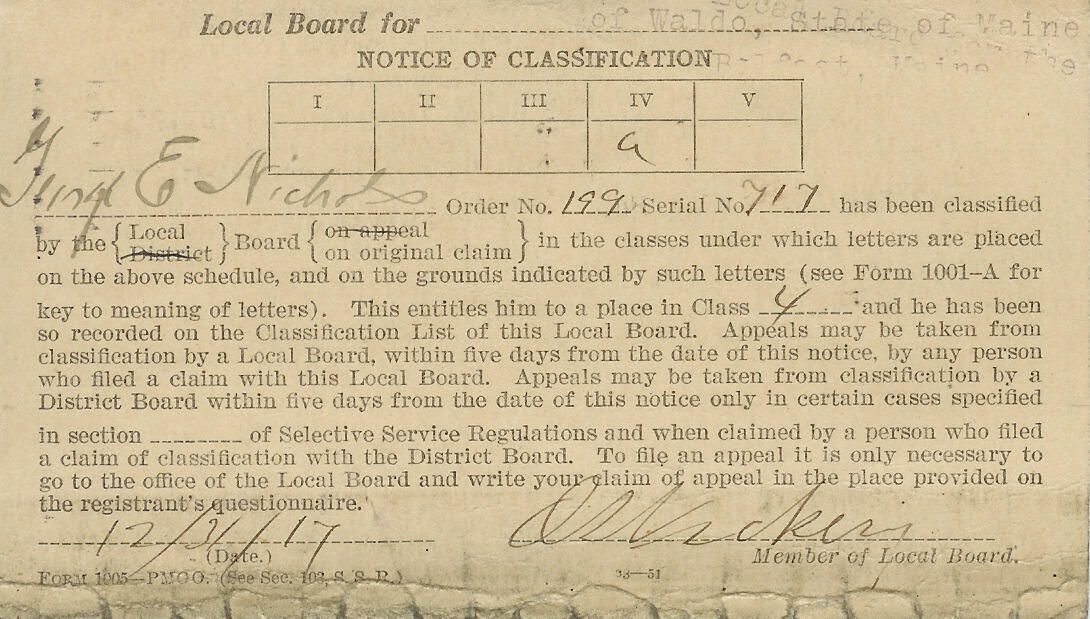 Local Board for of Waldo, State of Maine
NOTICE OF CLASSIFICATION Belfast, Maine
I II III IV V
a
E Nichols Order No. 199 Serial No. 717 has been classified
by the { Local District } Board { on appeal on original claim } in the classes under which letters are placed
on the above schedule, and on the grounds indicated by such letters (see Form 1001–A for
key to meaning of letters). This entitles him to a place in Class 4 and he has been
so recorded on the Classification List of this Local Board. Appeals may be taken from
classification by a Local Board, within five days from the date of this notice, by any person
who filed a claim with this Local Board. Appeals may be taken from classification by a
District Board within five days from the date of this notice only in certain cases specified
in section ________ of Selective Service Regulations and when claimed by a person who filed
a claim of classification with the District Board. To file an appeal it is only necessary to
go to the office of the Local Board and write your claim of appeal in the place provided on
the registrant's questionnaire.
12/31/17
(Date.) Member of Local Board.
FORM 1005—PMGO. (See Sec. 103, S. S. R.) 33—51